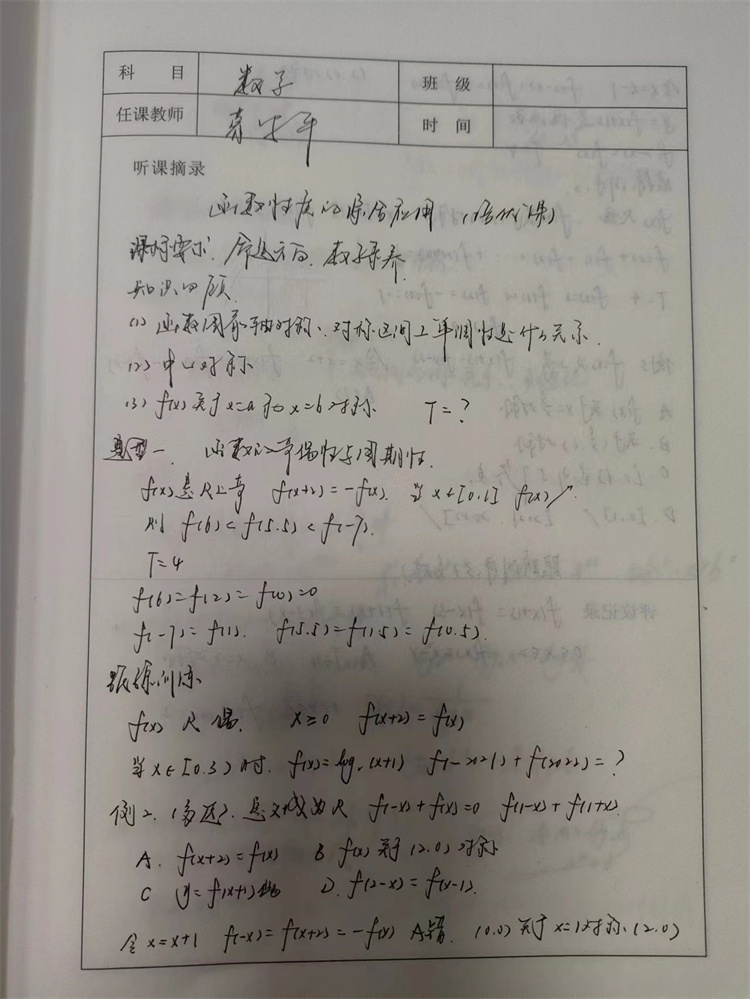 科 目 数学 班 级
任课教师 时 间
听课摘录
函数性质的综合应用（培优课）
课标要求、命题方向、数学素养.
知识回顾
(1) 函数图象轴对称、对称区间上单调性是什么关系.
(2) 中心对称
(3) f(x)关于x=a和x=b对称 T=?
题型一. 函数的奇偶性与周期性.
f(x)是R上奇 f(x+2)=-f(x). 当x∈[0.1] f(x)↗.
则 f(6)<f(5.5)<f(-7).
T=4
f(6)=f(2)=f(0)=0
f(-7)=f(1). f(5.5)=f(1.5)=f(0.5).
跟踪训练
f(x) R 偶. x≥0 f(x+2)=f(x)
当x∈[0.3)时. f(x)=log₂(x+1) f(-2021)+f(2022)=?
例2. (多选). 定义域为R f(-x)+f(x)=0 f(1-x)+f(1+x).
A. f(x+2)=f(x) B f(x)关于(2.0)对称
C y=f(x+1)偶 D. f(2-x)=f(x-1).
令x=x+1 f(-x)=f(x+2)=-f(x) A错. (0.0)关于x=1对称、(2.0)